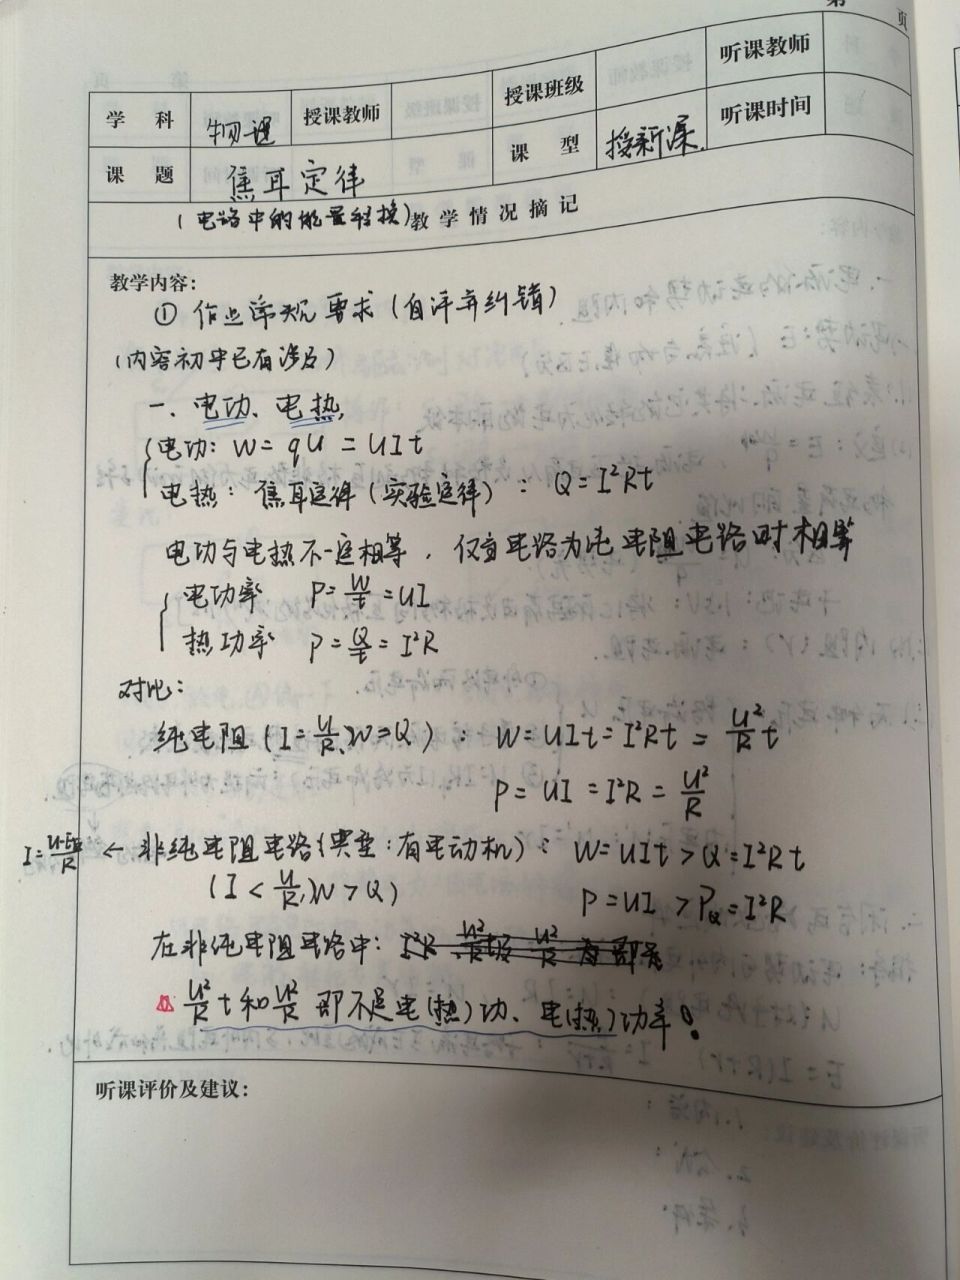 第 页
学科 物理 授课教师 授课班级 听课教师
课题 焦耳定律 课型 授新课. 听课时间
(电路中的能量转换) 教学情况摘记
教学内容:
① 作业常规要求(自评并纠错)
(内容初中已有涉及)
一、电功、电热,
电功: W=qU=UIt
电热: 焦耳定律(实验定律): Q=I²Rt
电功与电热不一定相等,仅当电路为纯电阻电路时相等
电功率 P=W/t=UI
热功率 P=Q/t=I²R
对比:
纯电阻(I=U/R、W=Q): W=UIt=I²Rt=U²/R t
P=UI=I²R=U²/R
← 非纯电阻电路(典型:有电动机): W=UIt>Q=I²Rt
(I<U/R,W>Q) P=UI>P_Q=I²R
在非纯电阻电路中:
U²/R t和U²/R 都不是电(热)功、电(热)功率!
听课评价及建议: